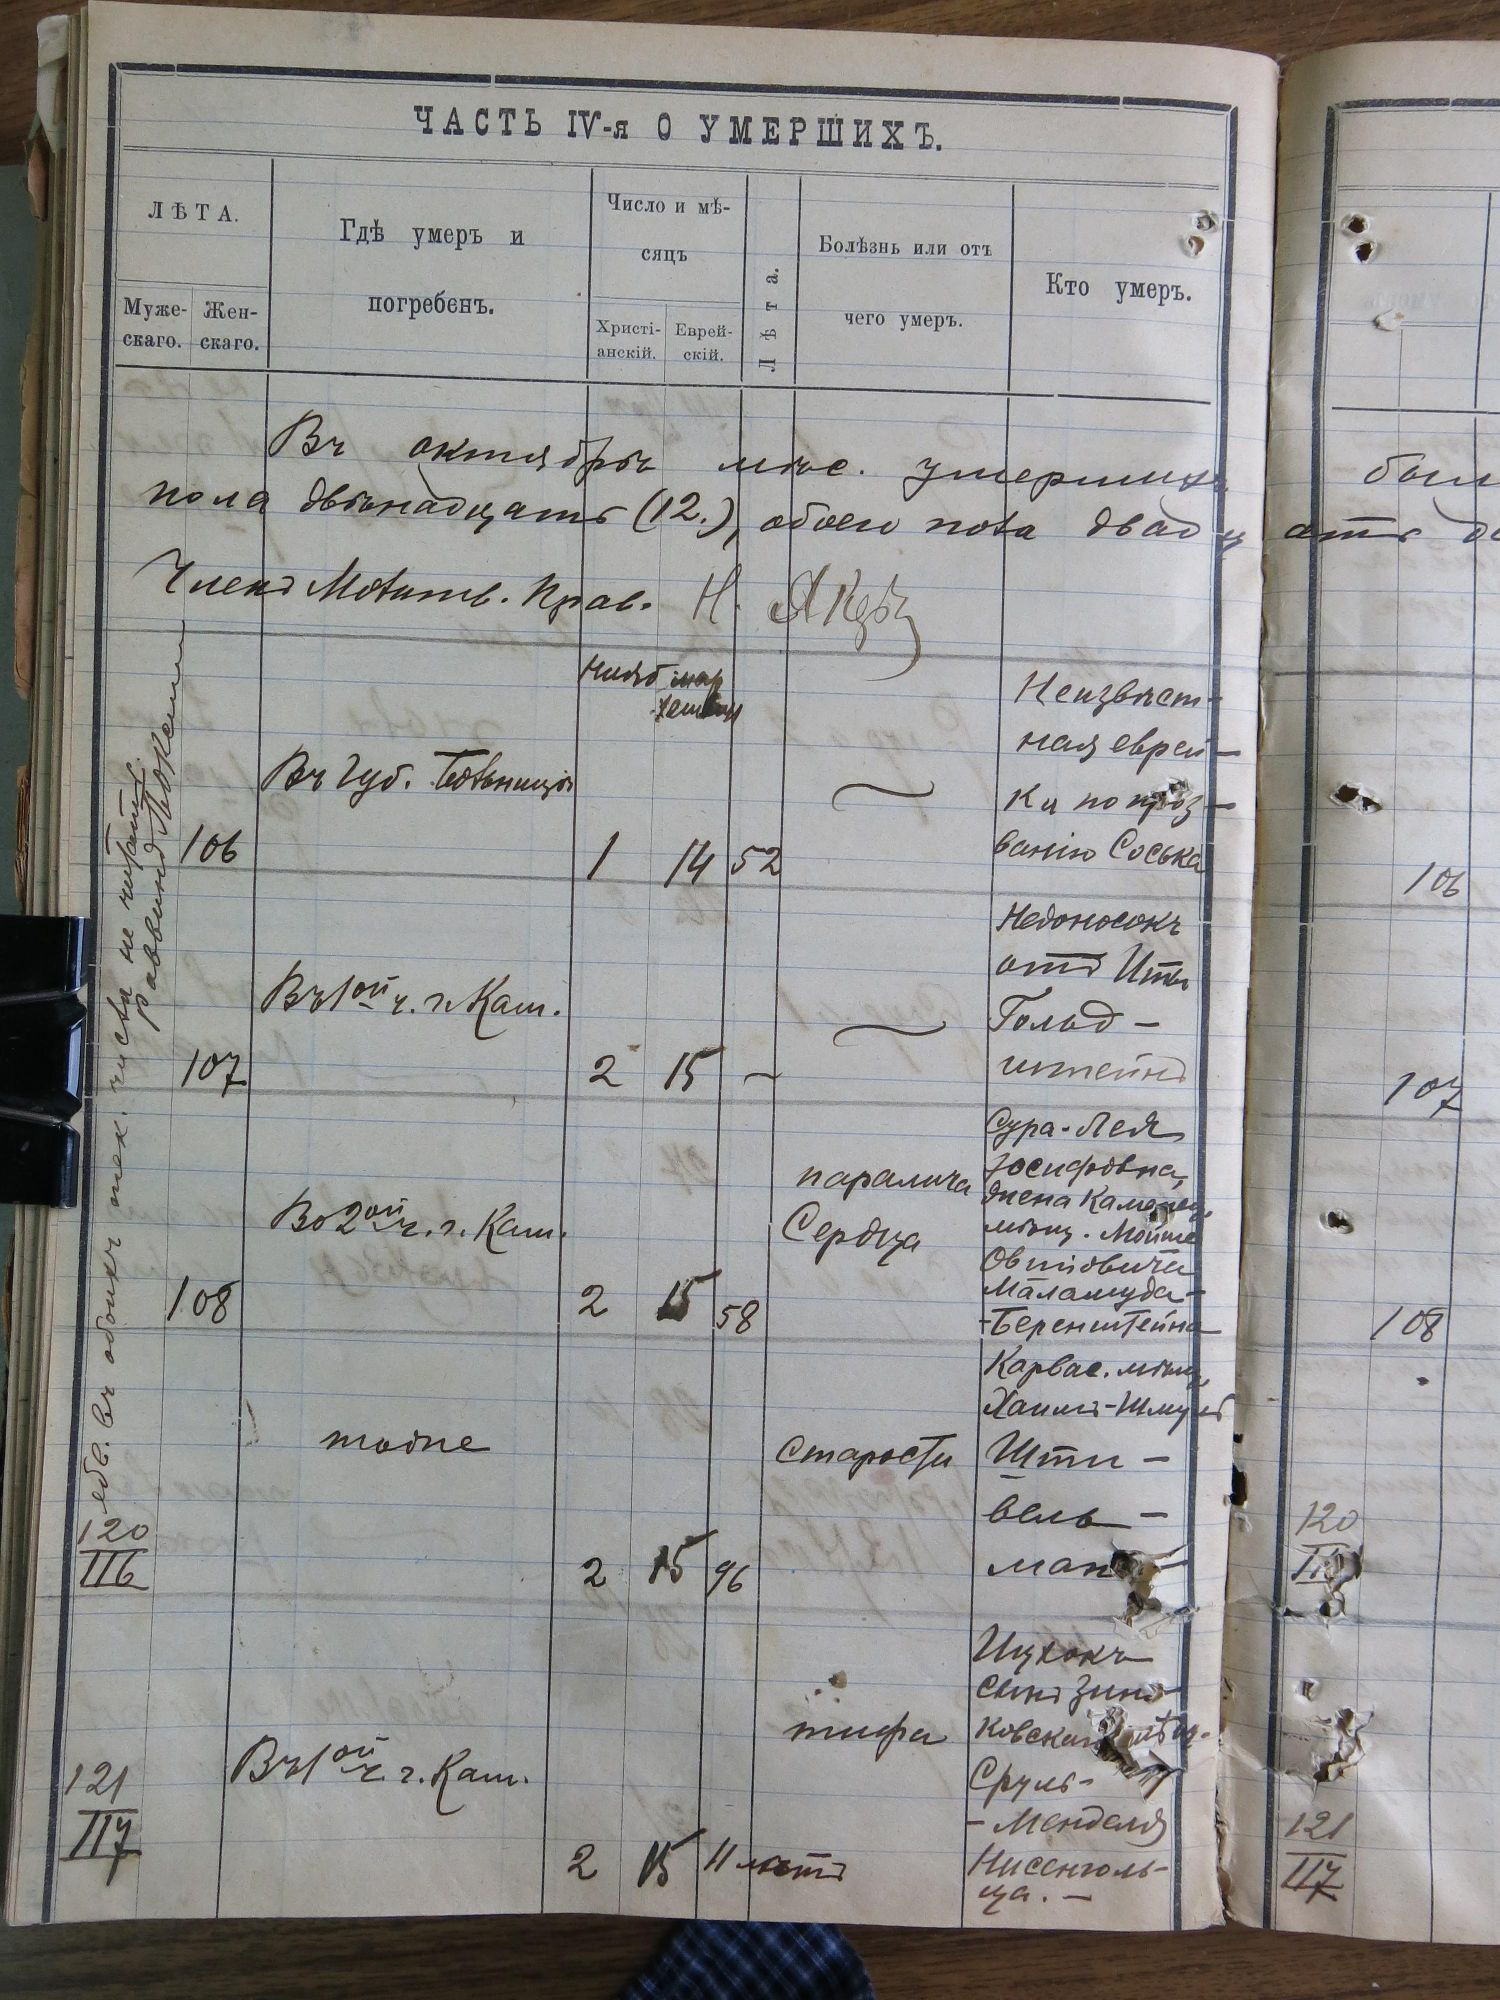 ЧАСТЬ IV-я О УМЕРШИХЪ.
ЛѢТА.
Муже-
скаго.
Жен-
скаго.
Гдѣ умеръ и
погребенъ.
Число и мѣ-
сяцъ
Христі-
анскій.
Еврей-
скій.
Лѣта.
Болѣзнь или отъ
чего умеръ.
Кто умеръ.
Въ октябрѣ мѣс. умершихъ
пола двѣнадцать (12.), обоего пола двадц
Членъ Молитв. Прав. Н.
Нояб мар
хешван
106
Въ Губ. Больницѣ
1 14 52
Неизвѣст-
ная еврей-
ка по проз-
ванію Соська
107
Въ 1ой ч. г. Кам.
2 15 -
Недоносокъ
отъ Иты
Гольд-
штейнъ
108
Во 2ой ч. г. Кам.
2 15 58
паралича
Сердца
Сура-Лея
Іосифовна,
жена Каменец.
мѣщ. Мошке
Овшіовича
Маламуда-
-Беренштейна
120
116
тоже
2 15 96
старости
Карвас. мѣщ.
Хаимъ-Шмуль
Шти-
вель-
ман
121
117
Въ 1ой ч. г. Кам.
2 15 11 лѣтъ
тифа
Ицхокъ
сынъ Зинь
ковскаго мѣщ.
Сруль-
-Менделя
Нисенголь-
ца. -
въ обоихъ тек. числа не читать.
Раввинъ
106
107
108
120
116
121
117